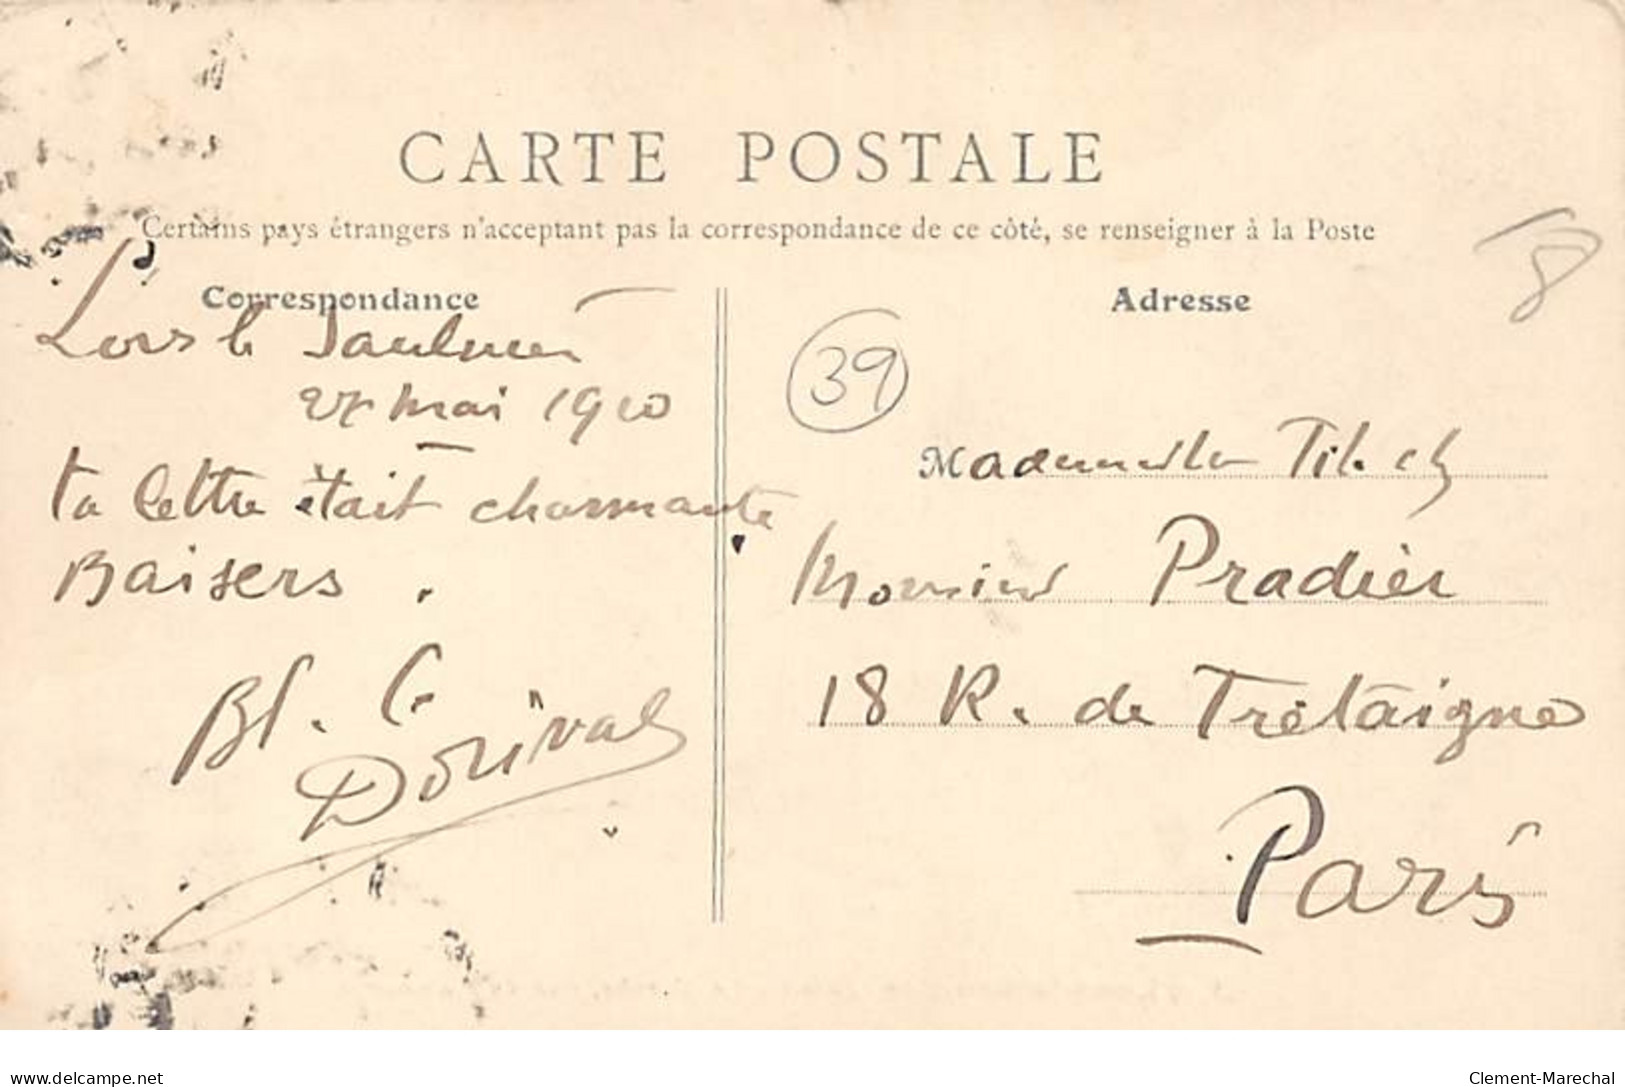 CARTE POSTALE
Certains pays étrangers n'acceptent pas la correspondance de ce côté, se renseigner à la Poste
Correspondance
Lons le Saulnier
27 mai 1910
ta lettre était charmante
Baisers.
Bl. C
Dorival
Adresse
39
8
Mademoiselle
Monsieur Pradier
18 R. de Trétaigne
Paris
www.delcampe.net
Clement-Marechal